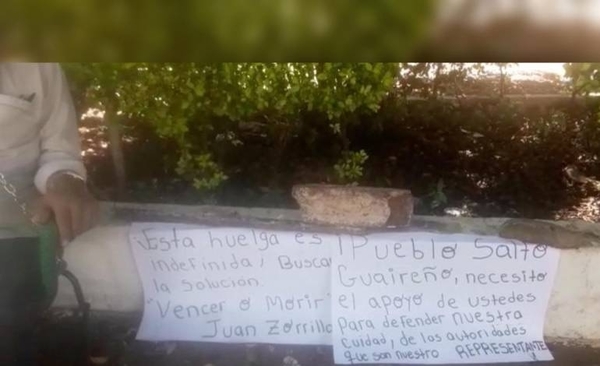 ¡Esta huelga es
indefinida! Busca
la solución
"Vencer o Morir"
Juan Zorrilla
¡Pueblo Salto
Guaireño, necesito
el apoyo de ustedes
para defender nuestra
cuidad, de las autoridades
que son nuestro REPRESENTANTE